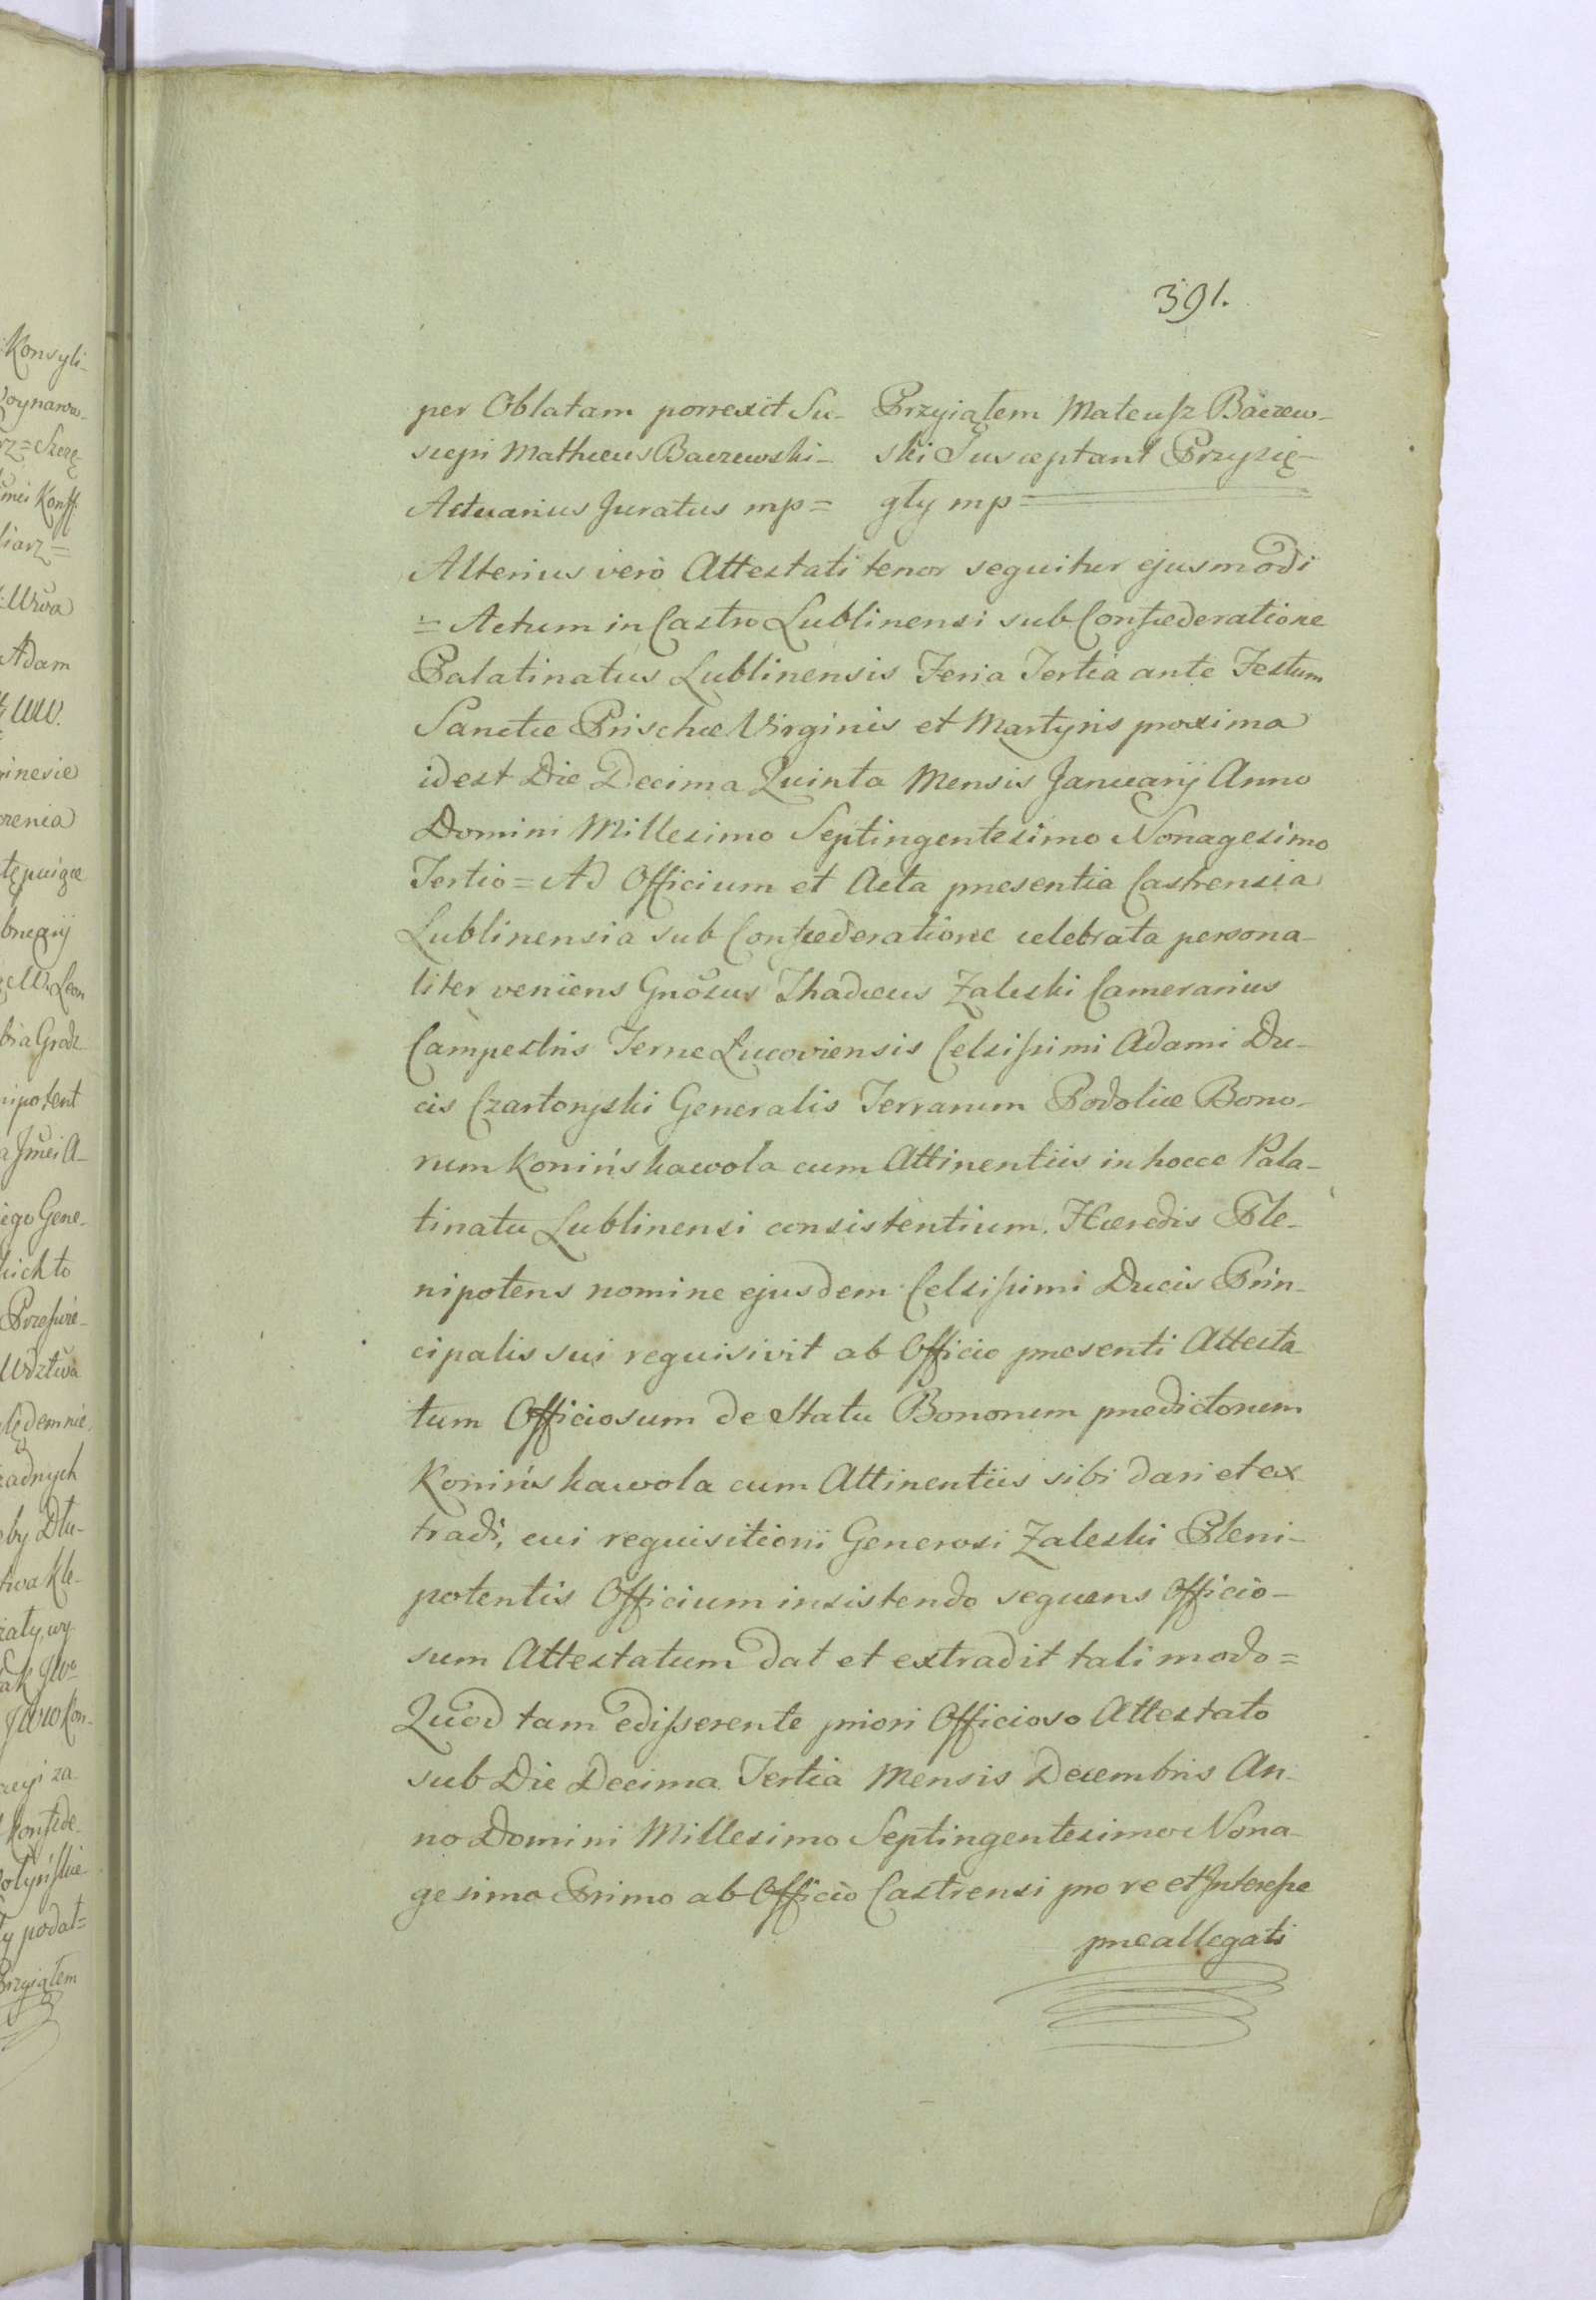 391.
per Oblatam porrexit Su-
scepi Mathæus Baczewski-
Actuarius Juratus mp=
Przyiąłem Mateusz Baczew-
ski Susceptant Przysię-
gły mp=
Alterius verò Attestati tenor sequitur ejusmodi
= Actum in Castro Lublinensi sub Confæderatione
Palatinatus Lublinensis Feria Tertia ante Festum
Sanctæ Prischæ Virginis et Martyris proxima
idest Die Decima Quinta Mensis Januarij Anno
Domini Millesimo Septingentesimo Nonagesimo
Tertio = Ad Officium et Acta præsentia Castrensia
Lublinensia sub Confæderatione celebrata persona-
liter veniens Gnõsus Thadæus Zaleski Camerarius
Campestris Terræ Lucoviensis Celsissimi Adami Du-
cis Czartoryski Generalis Terrarum Podoliæ Bono-
rum Konińskawola cum Attinentiis in hocce Pala-
tinatu Lublinensi consistentium. Hæredis Ple-
nipotens nomine ejusdem Celsissimi Ducis Prin-
cipalis sui requisivit ab Officio præsenti Attesta-
tum Officiosum de Statu Bonorum prædictorum
Konińskawola cum Attinentiis sibi dari et ex
tradi, cui requisitioni Generosi Zaleski Pleni-
potentis Officium insistendo sequens Officio-
sum Attestatum dat et extradit tali modo =
Quod tam edisserente priori Officioso Attestato
sub Die Decima Tertia Mensis Decembris An-
no Domini Millesimo Septingentesimo Nona-
gesimo Primo ab Officio Castrensi pro re et Interesse
præallegati